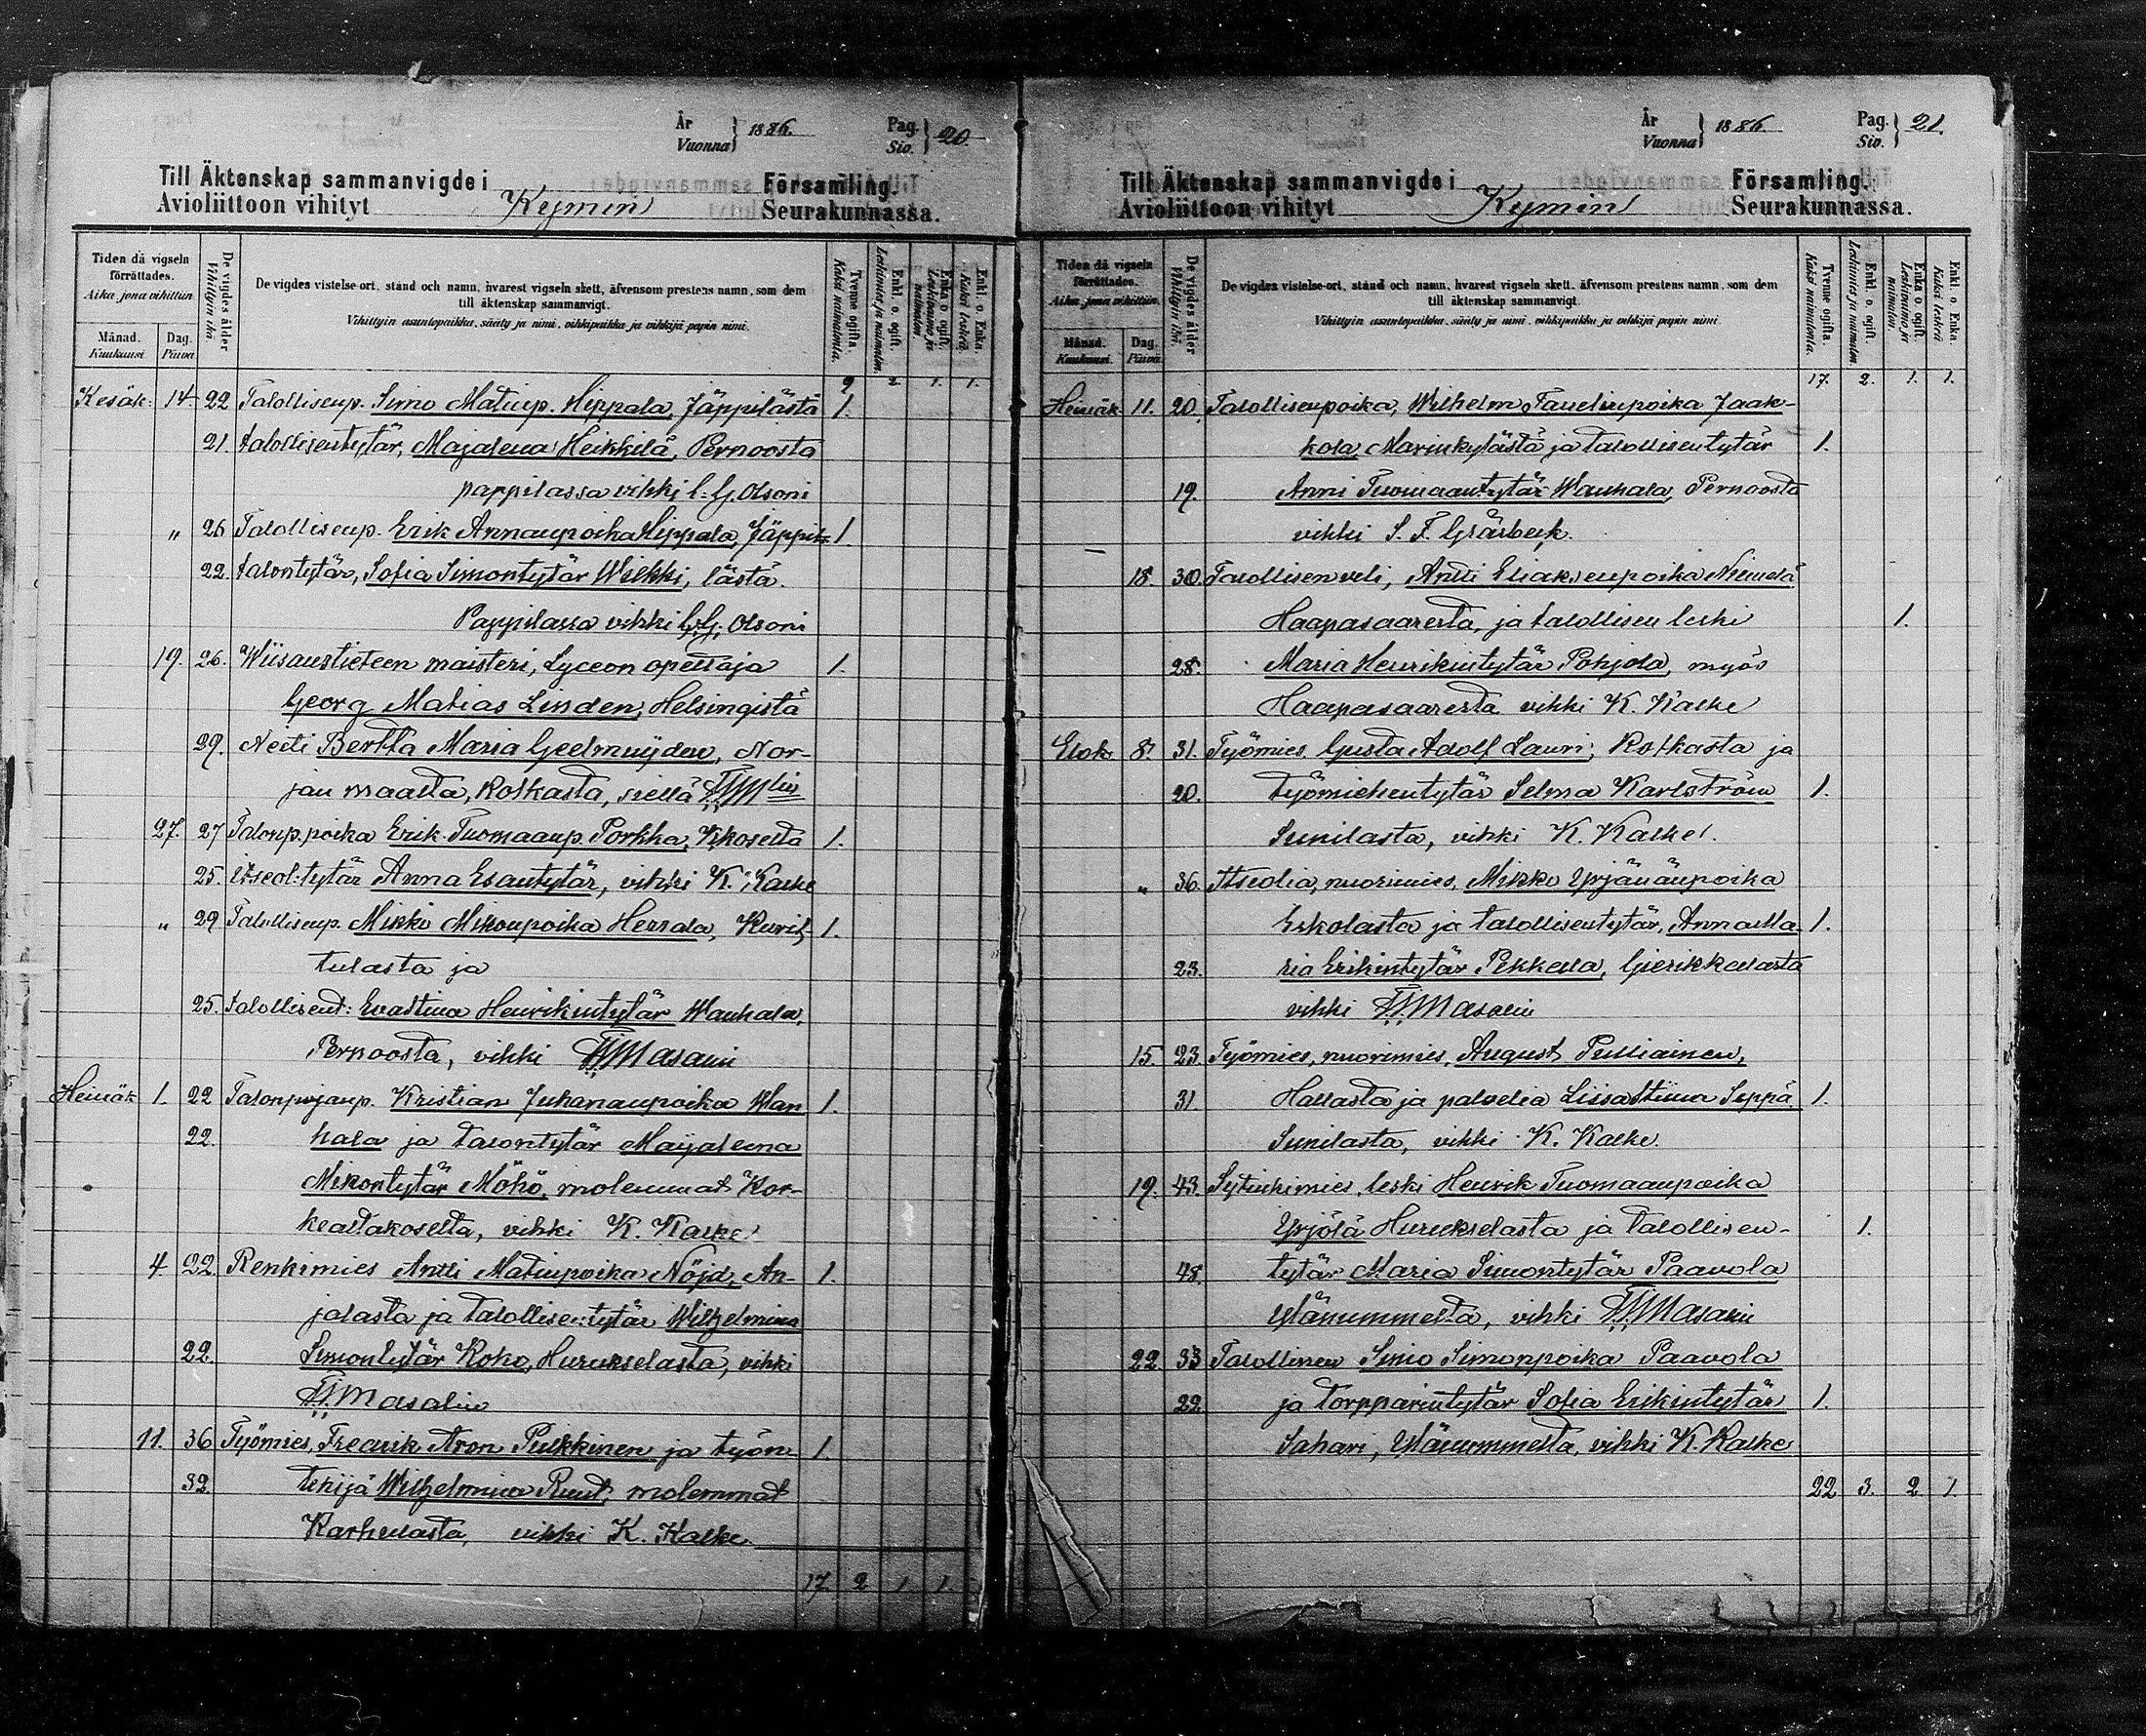 År
Vuonna } 1886.
Pag.
Siv. } 20.
Till Äktenskap sammanvigde i Församling.
Avioliittoon vihityt Kymin Seurakunnassa.
Tiden då vigseln förrättades.
Aika, jona vihittiin.
Månad. Kuukausi
Dag. Päivä
De vigdes ålder
Vihittyin ikä.
De vigdes vistelse-ort, stånd och namn, hvarest vigseln skett, äfvensom prestens namn, som dem
till äktenskap sammanvigt.
Vihittyin asuntopaikka, sääty ja nimi, vihkipaikka ja vihkijä papin nimi.
Tvenne ogifta.
Kaksi naimatonta.
Enkl. o. ogift.
Leskimies ja naimaton.
Enka o. ogift.
Leskivaimo ja naimaton.
Enkl. o. Enka.
Kaksi leskeä.
9 2. 1. 1.
Kesäk: 14. 22 Talollisenp. Simo Matinp. Hippala, Jäppilästä 1.
21. talollisentytär, Majalena Heikkilä, Pernoosta
pappilassa vihki C. G. Olsoni
" 26 Talollisenp. Erik Annanpoika Hippala, Jäppi- 1
22. talontytär, Sofia Simontytär Wilkki, lästä.
Pappilassa vihki C. G. Olsoni
19. 26. Wiisaustieteen maisteri, Lyceon opettaja 1.
Georg Matias Linden, Helsingistä
29. Neiti Bertta Maria Geelmuijden, Nor-
jan maalta, Kotkasta, siellä
27. 27 Talonp. poika Erik Tuomaanp. Porkka, K,koselta 1.
25. Itseol: tytär Anna Esantytär, vihki K. Kalke
" 29 Talollisenp. Mikki Mikonpoika Herrala, Kurit- 1.
tulasta ja
25. talollisent: Evastina Henrikintytär Wanhala,
Pernoosta, vihki F.W. Masalin
Heinäk 1. 22 Talonpojanp. Kristian Juhananpoika Wan 1.
22. hala ja talontytär Maijaleena
Mikontytär Möhö, molemmat Kor-
kealtakoselta, vihki K. Kalke
4. 22. Renkimies Antti Matinpoika Nöjd, An- 1.
jalasta ja talollisentytär Wilhelmina
22. Simontytär Koko, Hurukselasta, vihki
F.W. Masalin
11. 36 Työmies, Fredrik Aron Pulkkinen ja työn- 1.
32. tekijä Wilhelmina Ruut, molemmat
Karhulasta, vihki K. Kalke
17 2 1 1
År
Vuonna } 1886.
Pag.
Siv. } 21.
Till Äktenskap sammanvigde i Församling.
Avioliittoon vihityt Kymin Seurakunnassa.
Tiden då vigseln förrättades.
Aika, jona vihittiin.
Månad. Kuukausi.
Dag. Päivä
De vigdes ålder
Vihittyin ikä.
De vigdes vistelse-ort, stånd och namn, hvarest vigseln skett, äfvensom prestens namn, som dem
till äktenskap sammanvigt.
Vihittyin asuntopaikka, sääty ja nimi, vihkipaikka ja vihkijä papin nimi.
Tvenne ogifta.
Kaksi naimatonta.
Enkl. o. ogift.
Leskimies ja naimaton.
Enka o. ogift.
Leskivaimo ja naimaton.
Enkl. o. Enka.
Kaksi leskeä
17. 2. 1. 1.
Heinäk 11. 20. Talollisenpoika, Wilhelm Taavelinpoika Jaak-
kola, Marinkylästä ja talollisentytär 1.
19. Anni Tuomaantytär Wanhala, Pernoosta
vihki S. F. Gråsbeck.
18. 30. Talollisen veli, Antti Eliaksenpoika Niemelä
Haapasaaresta, ja talollisen leski 1.
28. Maria Henrikintytär Pohjola, myös
Haapasaaresta vihki K. Kalke
Elok. 8. 31. Työmies. Gusta Adolf Lauri, Kotkasta ja
20. työmiehentytär Selma Karlström 1.
Sunilasta, vihki K. Kalke.
" 36. Itseolia, nuorimies, Mikko Yrjänänpoika
Eskolasta ja talollisentytär, Anna Ma- 1.
23. ria Erikintytär Pekkala, Gierikkalasta
vihki F.W. Masalin
15. 23. Työmies, nuorimies, August Pulliainen,
31. Hallasta ja palvelia Liisa Stiina Seppä 1.
Sunilasta, vihki K. Kalke.
19. 43. Sytinkimies, leski Henrik Tuomaanpoika
Yrjölä Hurukselasta ja talollisen- 1.
48. tytär Maria Simontytär Paavola
Ylänummelta, vihki F.W. Masalin
22 33 Talollinen Simo Simonpoika Paavola
22 ja torpparintytär Sofia Erikintytär 1.
Sahari, Ylänummelta, vihki K. Kalke
22 3. 2 1